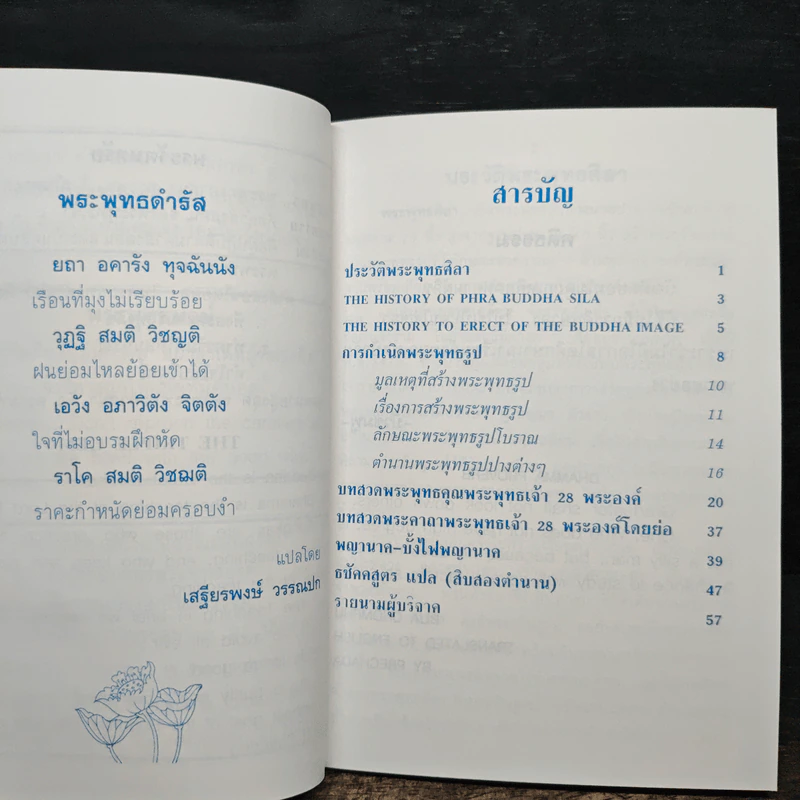 พระพุทธดำรัส
ยถา อคารัง ทุจฉันนัง
เรือนที่มุงไม่เรียบร้อย
วุฏฐิ สมติ วิชญติ
ฝนย่อมไหลย้อยเข้าได้
เอวัง อภาวิตัง จิตตัง
ใจที่ไม่อบรมฝึกหัด
ราโค สมติ วิชฌติ
ราคะกำหนัดย่อมครอบงำ
แปลโดย
เสฐียรพงษ์ วรรณปก
สารบัญ
ประวัติพระพุทธศิลา 1
THE HISTORY OF PHRA BUDDHA SILA 3
THE HISTORY TO ERECT OF THE BUDDHA IMAGE 5
การกำเนิดพระพุทธรูป 8
มูลเหตุที่สร้างพระพุทธรูป 10
เรื่องการสร้างพระพุทธรูป 11
ลักษณะพระพุทธรูปโบราณ 14
ตำนานพระพุทธรูปปางต่างๆ 16
บทสวดพระพุทธคุณพระพุทธเจ้า 28 พระองค์ 20
บทสวดพระคาถาพระพุทธเจ้า 28 พระองค์โดยย่อ 37
พญานาค-บั้งไฟพญานาค 39
ธชัคคสูตร แปล (สิบสองตำนาน) 47
รายนามผู้บริจาค 57